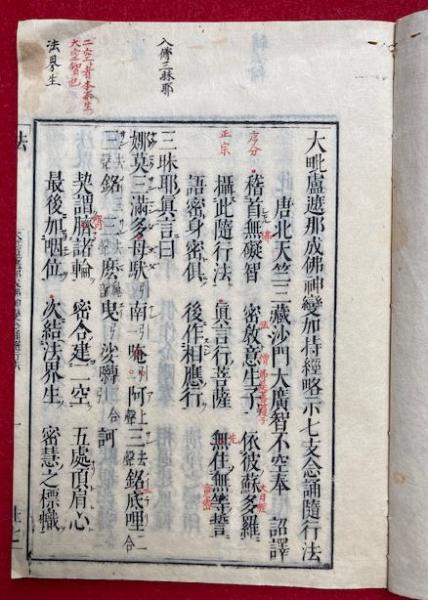 大毗盧遮那成佛神變加持經略示七支念誦隨行法
唐北天竺三藏沙門大廣智不空奉 詔譯
序分
稽首無礙智 密教意生子 依彼蘇多羅
正宗
攝此隨行法 眞言行菩薩 無住無等誓
語密身密俱 後作相應行
入佛三昧耶
三昧耶眞言曰
娜莫三滿多母馱南引 阿上三去聲銘底哩二合
三去聲銘 三 麽 曳 沙嚩二合訶
二空者
大空智也
契謂齊諸輪 密合建二空 五處頂肩心
法界生
最後加咽位 次結法界生 密慧之標幟
法